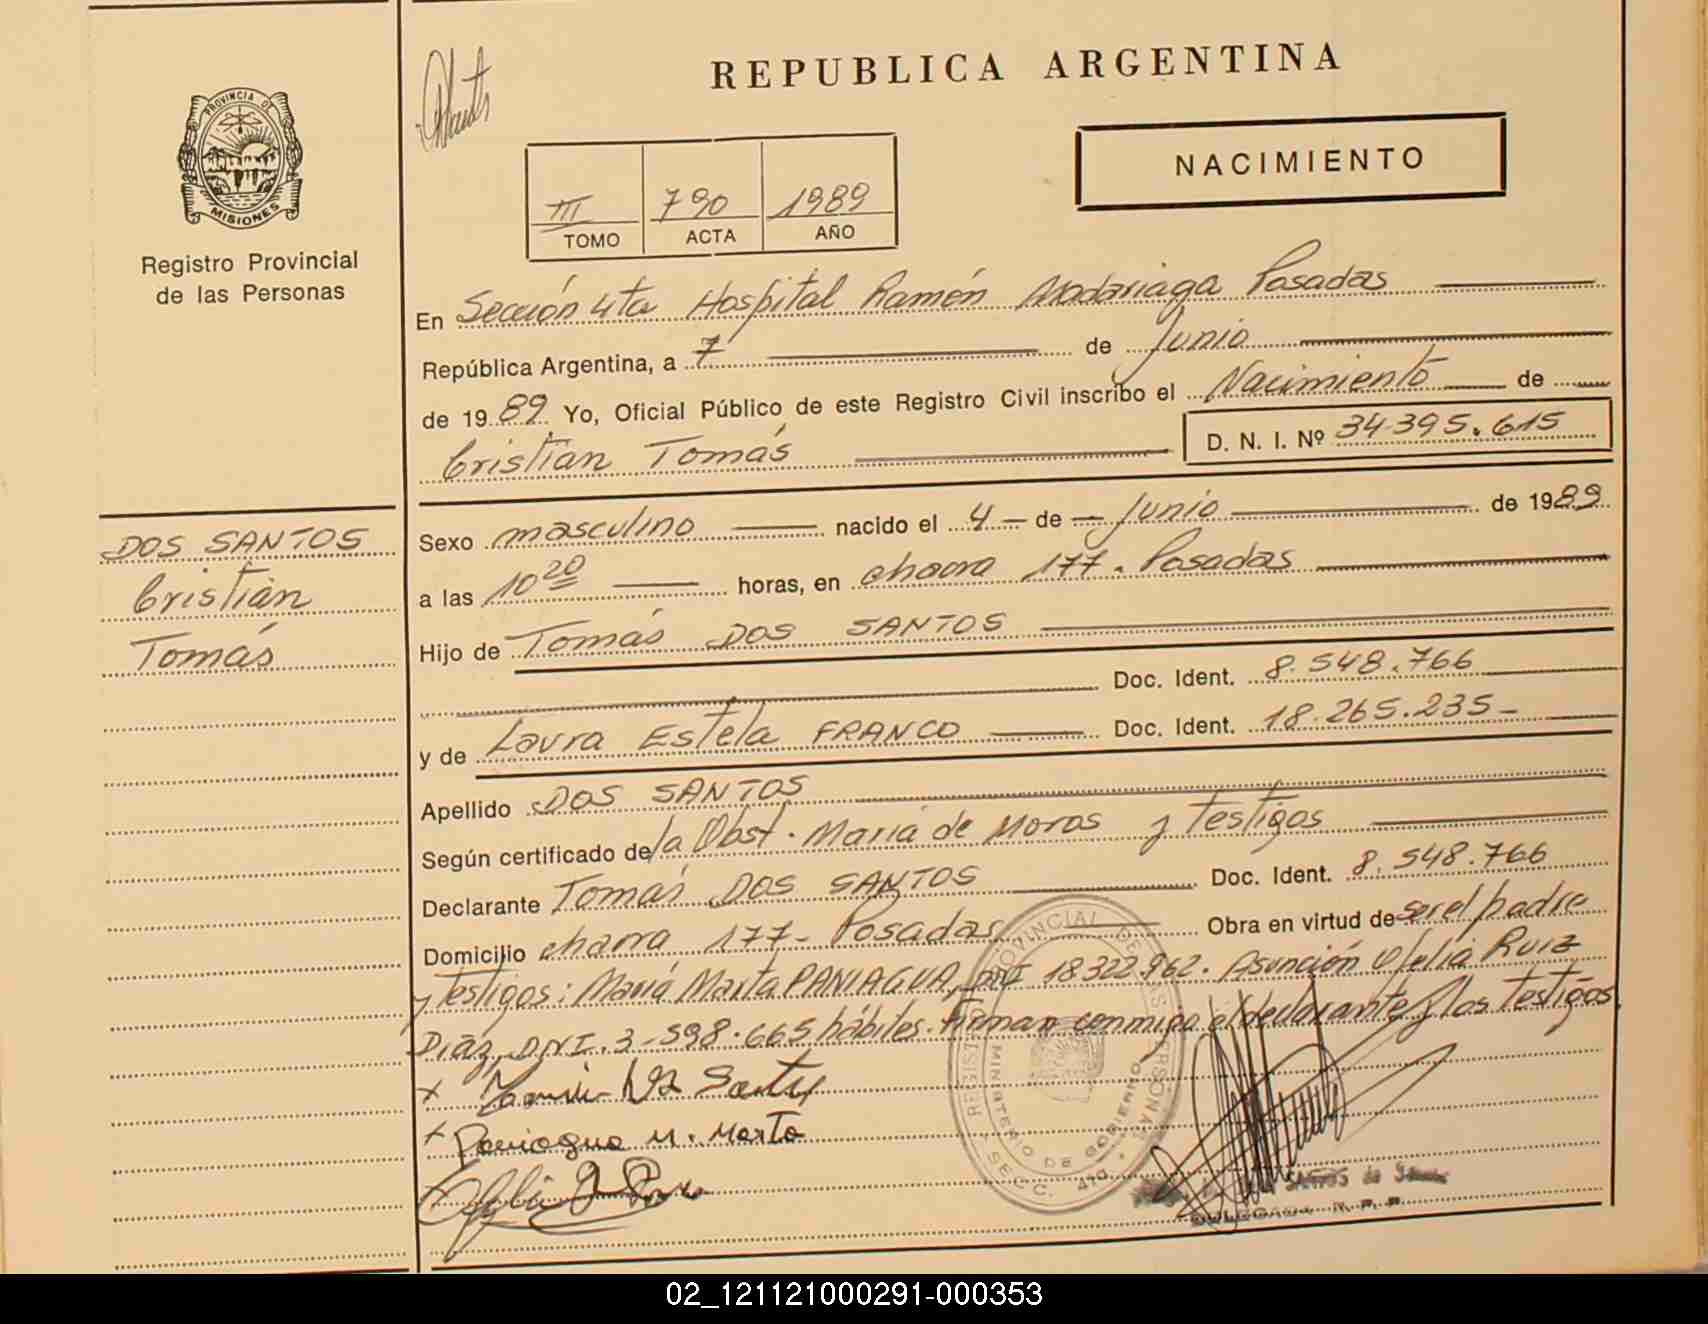 REPUBLICA ARGENTINA
NACIMIENTO
PROVINCIA DE
MISIONES
Registro Provincial
de las Personas
III 790 1989
TOMO ACTA AÑO
En Sección 4ta Hospital Ramón Madariaga Posadas
República Argentina, a 7 de Junio
de 1989 Yo, Oficial Público de este Registro Civil inscribo el Nacimiento de
Cristian Tomás D. N. I. Nº 34.395.615
DOS SANTOS
Cristian
Tomás
Sexo masculino nacido el 4 de Junio de 1989
a las 10 20 horas, en chacra 177. Posadas
Hijo de Tomás DOS SANTOS
Doc. Ident. 8.548.766
y de Laura Estela FRANCO Doc. Ident. 18.265.235
Apellido DOS SANTOS
Según certificado de la Obst. María de Moros y Testigos
Declarante Tomás DOS SANTOS Doc. Ident. 8.548.766
Domicilio chacra 177 - Posadas Obra en virtud de ser el padre
y Testigos: María Marta PANIAGUA, DNI 18322.962. Asunción Ofelia Ruiz
Diaz, DNI. 3-598.665 hábiles. Firman conmigo el declarante y los Testigos.
Paniagua M. Marta
REGISTRO PROVINCIAL DE LAS PERSONAS
MINISTERIO DE GOBIERNO
SECC. 4ta
SANTOS de
DELEGADA R. P. P.
02_121121000291-000353